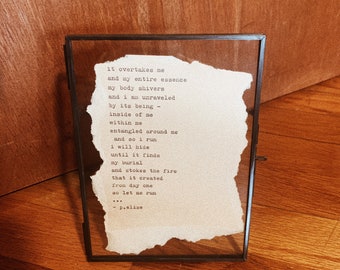 it overtakes me
and my entire essence
my body shivers
and i am unraveled
by its being -
inside of me
within me
entangled around me
and so i run
i will hide
until it finds
my burial
and stokes the fire
that it created
from day one
so let me run
...
- p.alize